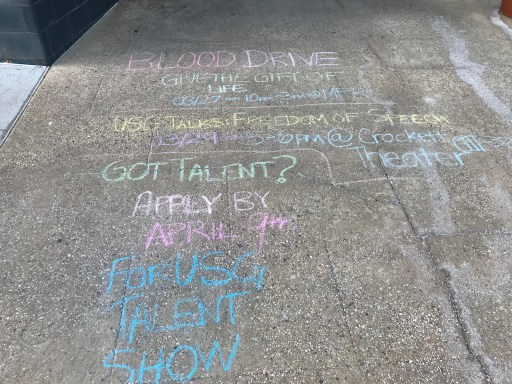 BLOOD DRIVE
GIVE THE GIFT OF
LIFE
03/27 10am-3pm @
USG TALKS: FREEDOM OF SPEECH
03/29 5-6PM @ Crockett
Theater
GOT TALENT?
APPLY BY
APRIL 9TH
FOR USG
TALENT
SHOW